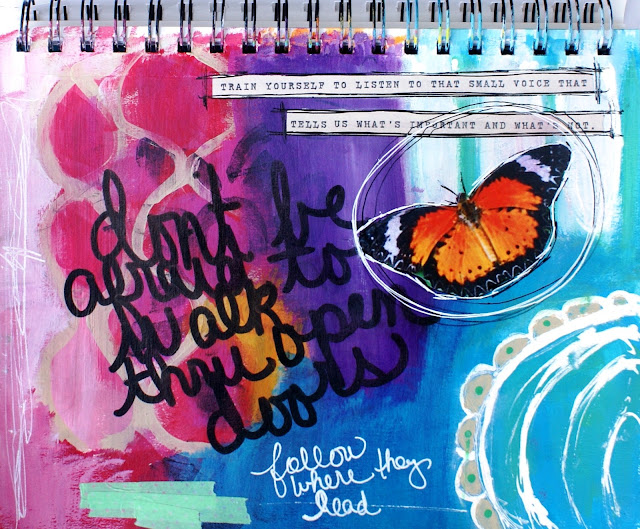 TRAIN YOURSELF TO LISTEN TO THAT SMALL VOICE THAT
TELLS US WHAT'S IMPORTANT AND WHAT'S NOT.
dont be
afraid to
walk
thru open
doors
follow
where they
lead